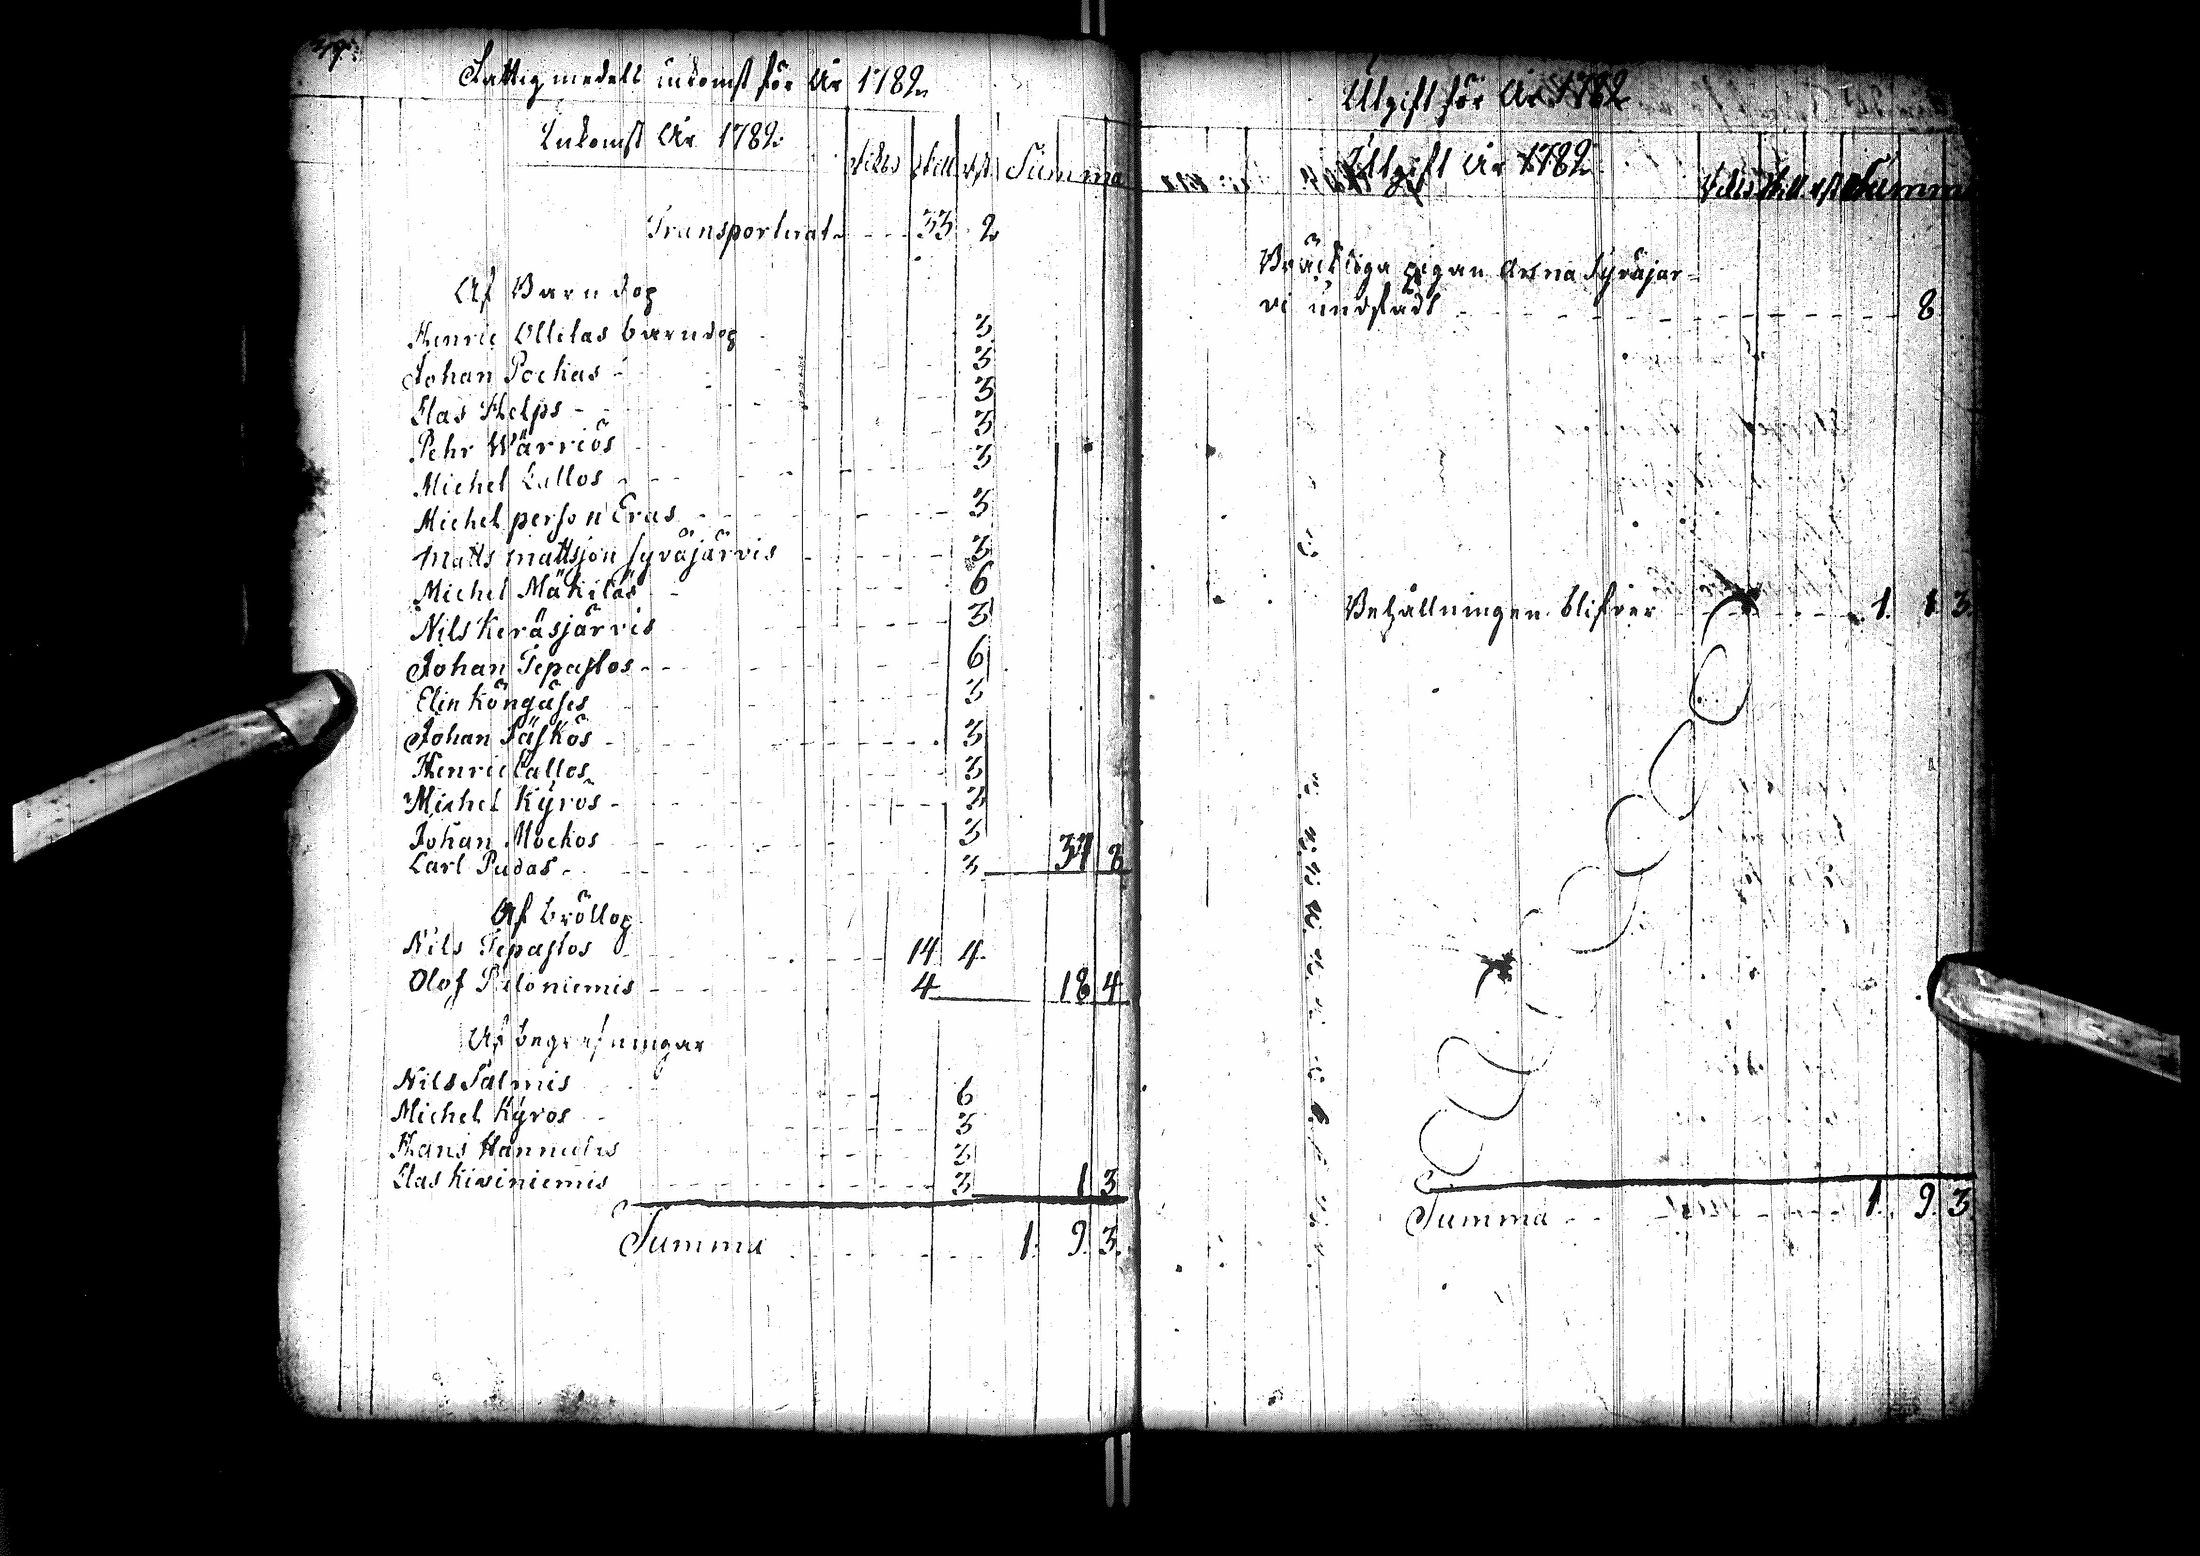 Fattigmedell inkomst för År 1782
Inkomst År 1782. Rikds skill rst Summa
Transporterat 33 2
Af Barndop
Henric Ollilas barndop 3
Johan Pockas 3
Clas Helps 3
Pehr Wärriös 3
Michel Lallos 3
Michel person Eras 3
Matts mattsson Syväjärvis 3
Michel Mäkiläs 6
Nils Keräsjärvis 3
Johan Tepastos 6
Elin Köngäses 3
Johan Säskös 3
Henric Lallos 3
Michel Kyrös 3
Johan Mockos 3
Carl Pudas 3 37 8
Af bröllop
Nils Tepastos 14 4
Olof Peloniemis 4 18 4
Af begrafningar
Nils Salmis 6
Michel Kyros 3
Hans Hannulas 3
Clas Kiviniemis 3 1 3
Summa 1. 9. 3.
Utgift för År 1782
Utgift År 1782 Summa
Bräckliga pigan Anna Syväjär-
vi undfådt 8
Behållningen blifver 1. 1. 3
Summa 1. 9. 3.